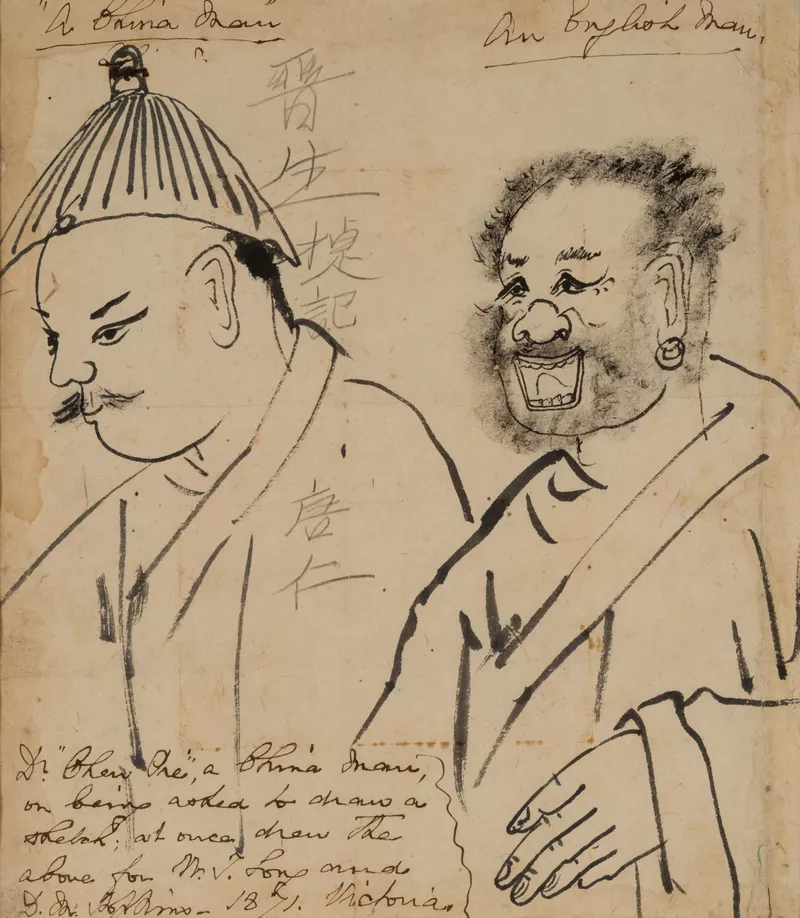 "A China Man"
An English Man.
晉
生
記
唐
仁
Dr a China Man,
on being asked to draw a
sketch, at once drew the
above for W. T. Long and
1871. Victoria.